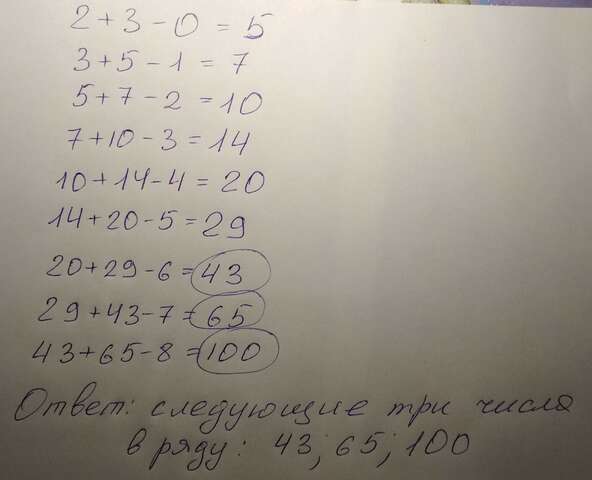 2+3-0=5
3+5-1=7
5+7-2=10
7+10-3=14
10+14-4=20
14+20-5=29
20+29-6=43
29+43-7=65
43+65-8=100
Ответ: следующие три числа
в ряду: 43; 65; 100